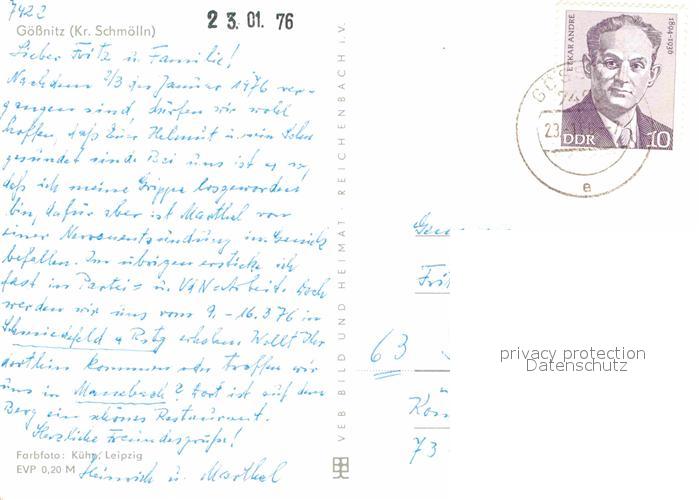 7422
Gößnitz (Kr. Schmölln)
23.01.76
Lieber Fritz u. Familie!
Nachdem 2/3 des Januar 1976 ver-
gangen sind, dürfen wir wohl
hoffen, daß Euer Helmut u. sein Sohn
gesünder sind. Bei uns ist es so,
daß ich meine Grippe losgeworden
bin, dafür aber ist Marthel von
einer Nervenentzündung im Genick
befallen. Im übrigen ersticke ich
fast in Partei- u. VdN-Arbeit. Doch
werden wir uns vom 9. - 16.3.76 in
Schmiedefeld a Rstg erholen. Wollt Ihr
dorthin kommen oder treffen wir
uns in Manebach? Dort ist auf dem
Berg ein schönes Restaurant.
Herzliche Freundesgrüße!
Heinrich u. Marthel
Farbfoto: Kühn, Leipzig
EVP 0,20 M
VEB BILD UND HEIMAT · REICHENBACH i. V.
ETKAR ANDRE
1894-1936
DDR 10
23.
e
63
73
privacy protection
Datenschutz